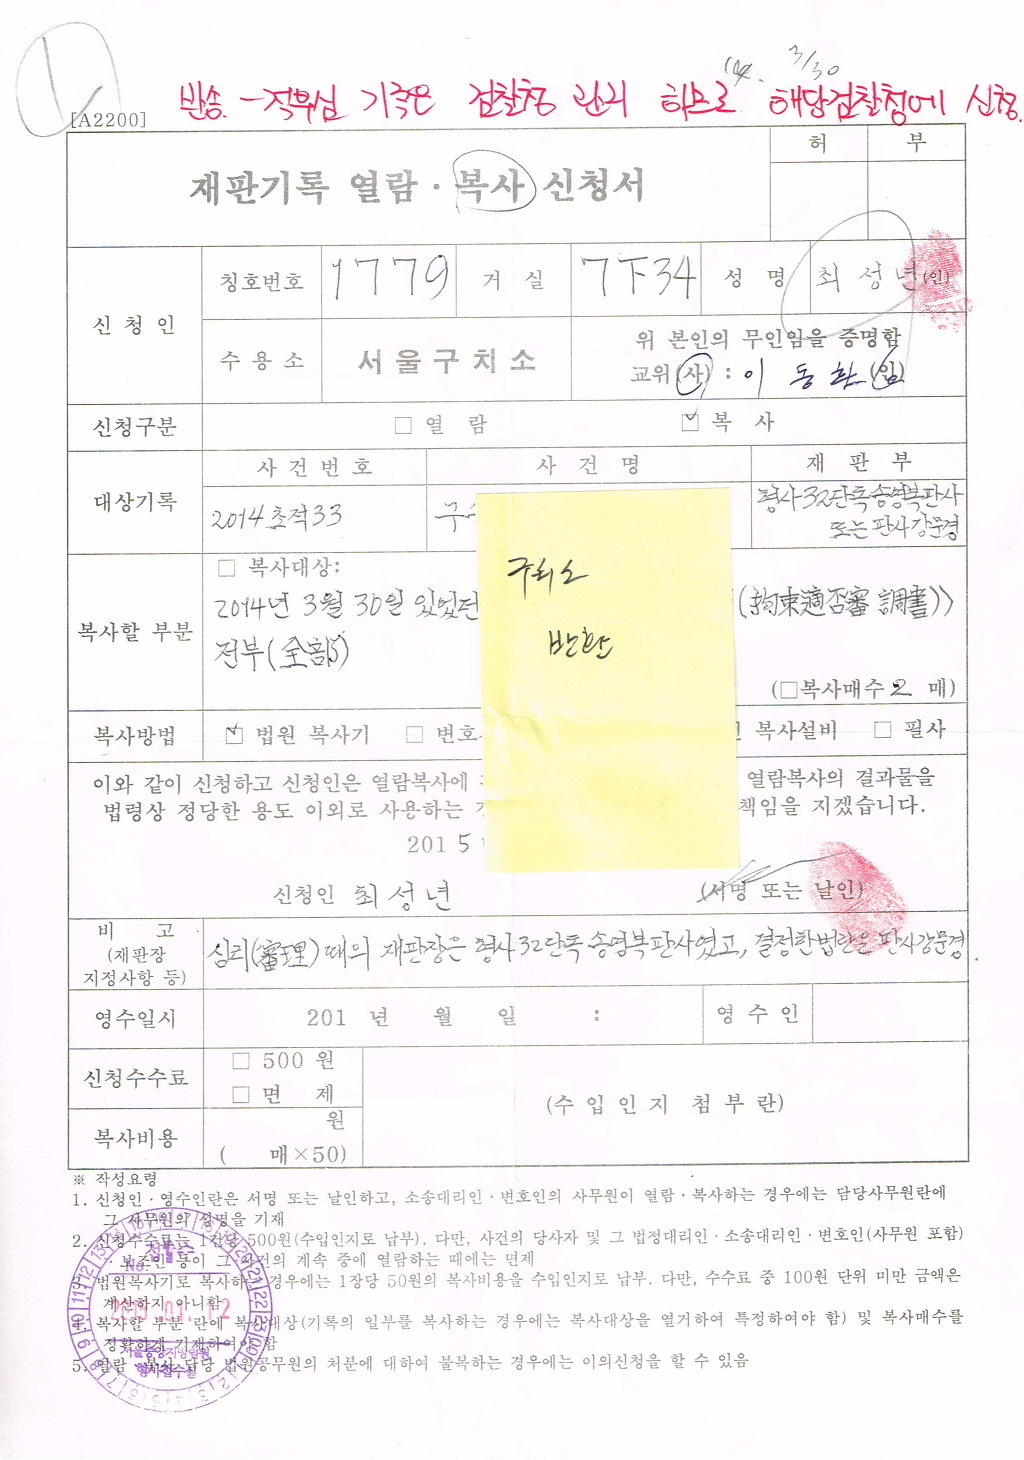 '14. 3/30
반송 - 적부심 기록은 검찰청 관리 하므로 해당검찰청에 신청.
[A2200]
재판기록 열람·복사 신청서
허 부
신청인
칭호번호 1779 거실 7下34 성명 최성년 (인)
수용소 서울구치소
위 본인의 무인임을 증명함
교위(사) : 이동환 (인)
신청구분 □ 열람 ☑ 복사
대상기록
사건번호 사건명 재판부
2014초적33 구
형사32단독송영복판사
또는판사강문경
복사할 부분
□ 복사대상:
2014년 3월 30일 있었던 (拘束適否審 調書)》
전부(全部)
(□복사매수 2 매)
구치소
반환
복사방법 ☑ 법원 복사기 □ 변호 복사설비 □ 필사
이와 같이 신청하고 신청인은 열람복사에 열람복사의 결과물을
법령상 정당한 용도 이외로 사용하는 책임을 지겠습니다.
2015
신청인 최성년 (서명 또는 날인)
비고
(재판장
지정사항 등)
심리(審理) 때의 재판장은 형사32단독 송영복판사였고, 결정한법관은 판사강문경.
영수일시 201 년 월 일 : 영수인
신청수수료
□ 500원
□ 면 제
(수입인지 첨부란)
복사비용
원
( 매×50)
※ 작성요령
1. 신청인·영수인란은 서명 또는 날인하고, 소송대리인·변호인의 사무원이 열람·복사하는 경우에는 담당사무원란에
그 사무원의 성명을 기재
2. 신청수수료는 1건당 500원(수입인지로 납부). 다만, 사건의 당사자 및 그 법정대리인·소송대리인·변호인(사무원 포함)
·보조인 등이 그 사건의 계속 중에 열람하는 때에는 면제
3. 법원복사기로 복사하는 경우에는 1장당 50원의 복사비용을 수입인지로 납부. 다만, 수수료 중 100원 단위 미만 금액은
계산하지 아니함
4. 복사할 부분 란에 복사대상(기록의 일부를 복사하는 경우에는 복사대상을 열거하여 특정하여야 함) 및 복사매수를
정확하게 기재하여야 함
5. 열람·복사 담당 법원공무원의 처분에 대하여 불복하는 경우에는 이의신청을 할 수 있음
접수
No.
2015.01.12
서울중앙지방법원
형사접수실